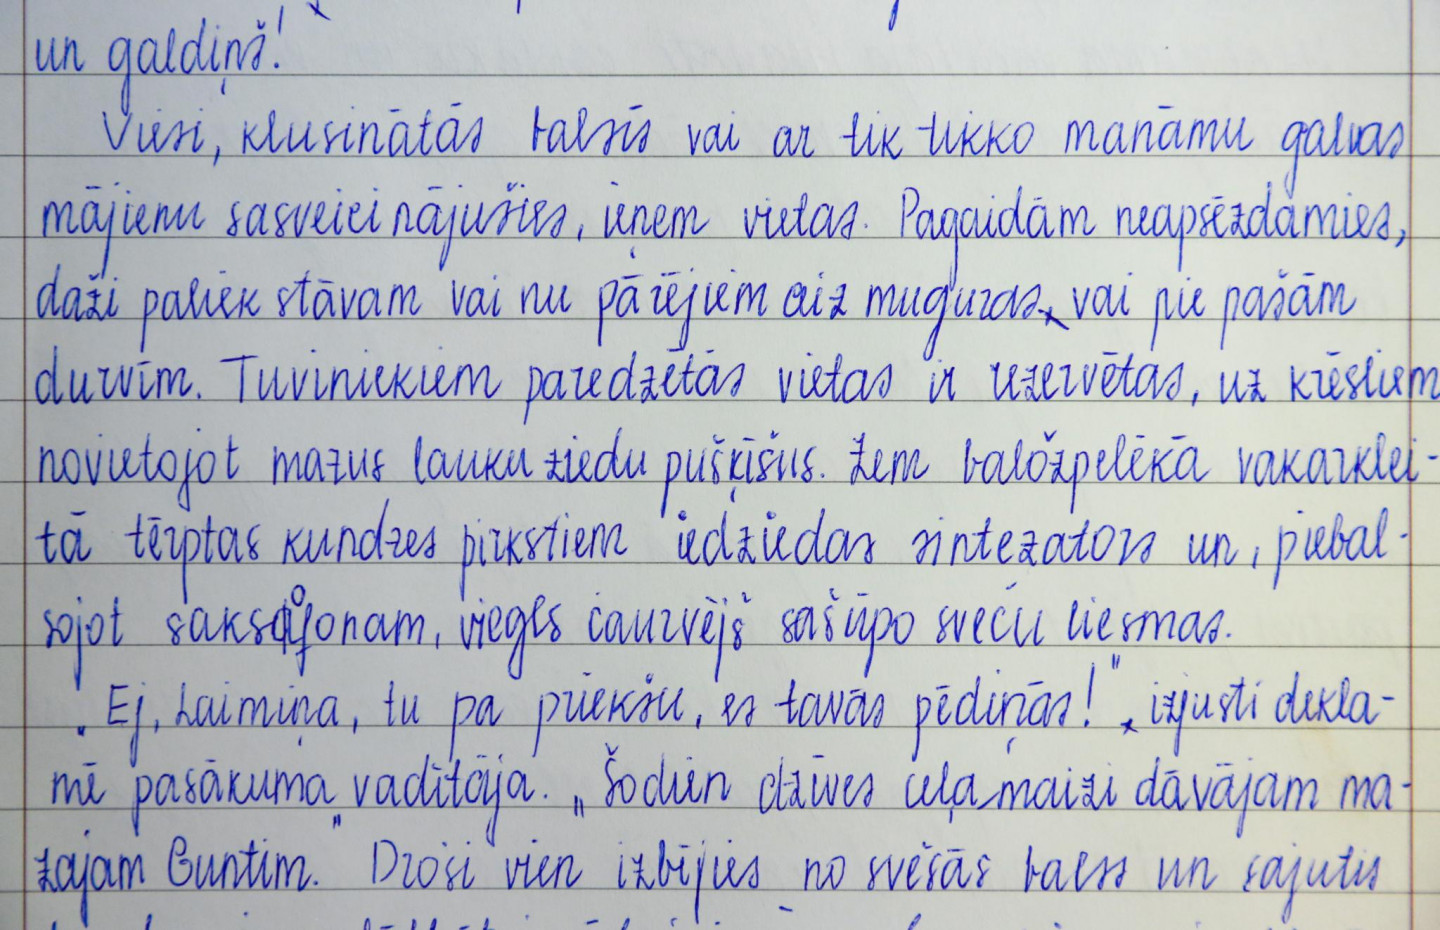 un galdiņš!
Viesi, klusinātās balsīs vai ar tik tikko manāmu galvas
mājienu sasveicinājušies, ieņem vietas. Pagaidām neapsēzdamies,
daži paliek stāvam vai nu pārējiem aiz muguras, vai pie pašām
durvīm. Tuviniekiem paredzētās vietas ir rezervētas, uz krēsliem
novietojot mazus lauku ziedu pušķīšus. Zem baložpelēkā vakarklei-
tā tērptas kundzes pirkstiem iedziedas sintezators un, piebal-
sojot saksofonam, viegls caurvējš sašūpo sveču liesmas.
"Ej, Laimiņa, tu pa priekšu, es tavās pēdiņās!" izjusti dekla-
mē pasākuma vadītāja. "Šodien dzīves ceļamaizi dāvājam ma-
zajam Guntim." Droši vien izbījies no svešās balss un sajutis